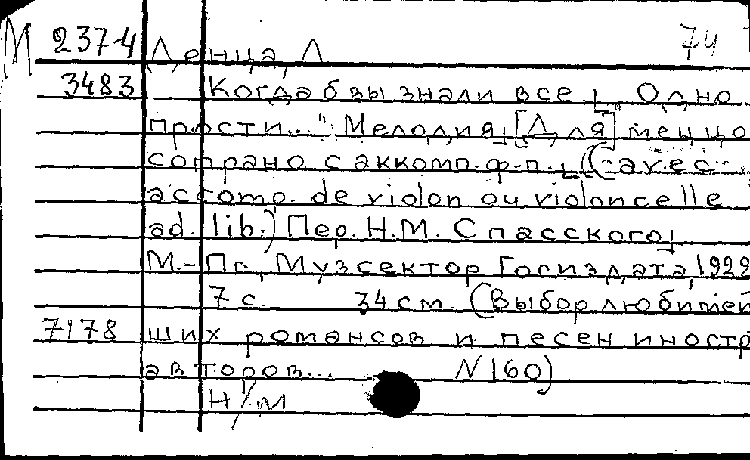 М 237-4 Денца, Л 74
3483 Когда б вы знали все ... Одно
прости..." Мелодия, [Для] меццо
сопрано с аккомп. ф.-п., (avec
accomp. de violon ou violoncelle
ad. lib.) Пер. Н.М. Спасского,
М.-Пг., Музсектор Госиздата, 1922
7 с. 34 см. (Выбор любимей
7178 ших романсов и песен иностр
авторов... N 160)
Н/М